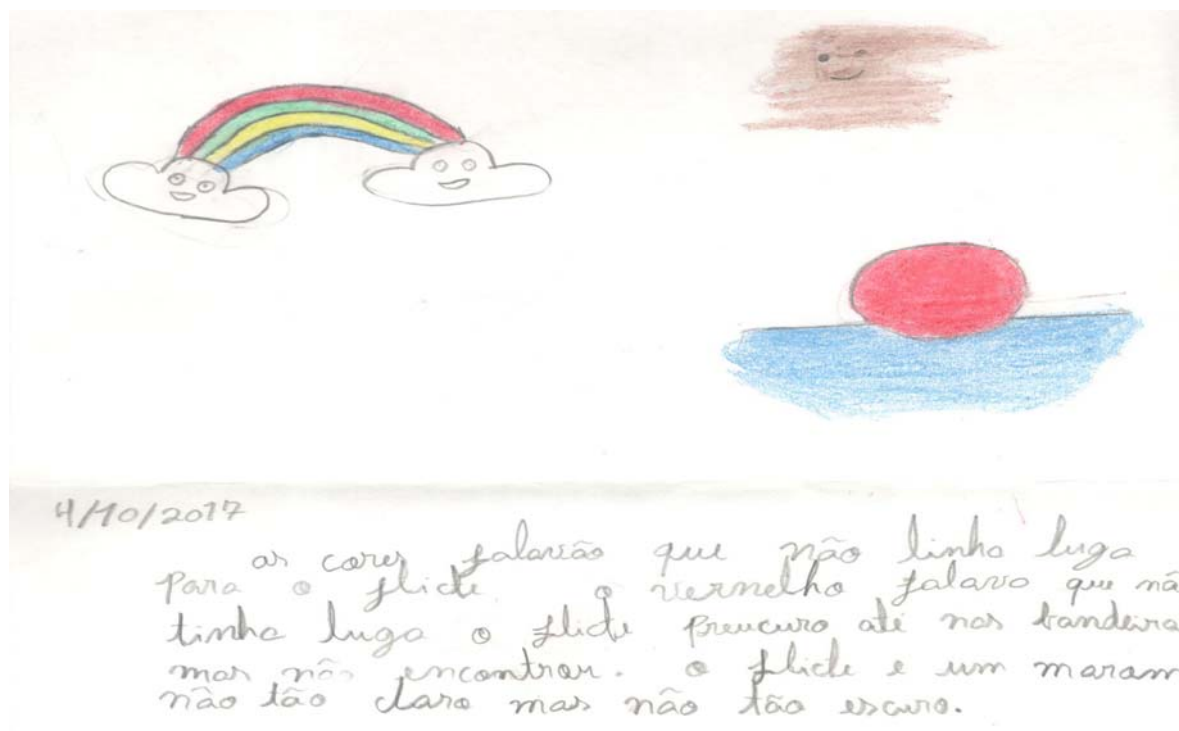 4/10/2017
as cores falavão que não tinha luga
para o flicte o vermelho falavo que nã
tinha luga o flicte preucuro até nas bandeira
mas não encontrou. o flicte e um maram
não tão claro mas não tão escuro.